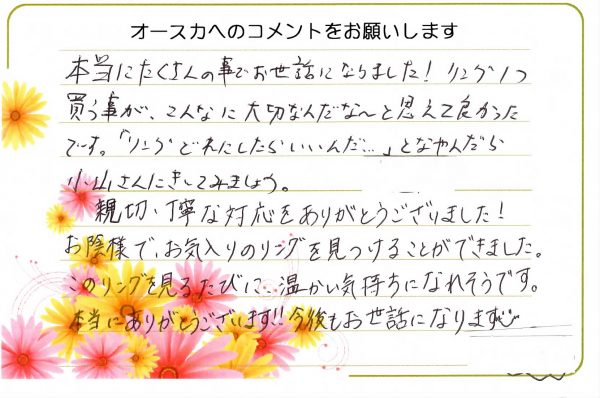 オースカへのコメントをお願いします
本当にたくさんの事でお世話になりました！リング1つ
買う事が、こんなに大切なんだな〜と思えて良かった
です。「リングどれにしたらいいんだ…」となやんだら
小山さんにきいてみましょう。
親切、丁寧な対応をありがとうございました！
お陰様で、お気入りのリングを見つけることができました。
このリングを見るたびに、温かい気持ちになれそうです。
本当にありがとうございます!!今後もお世話になります